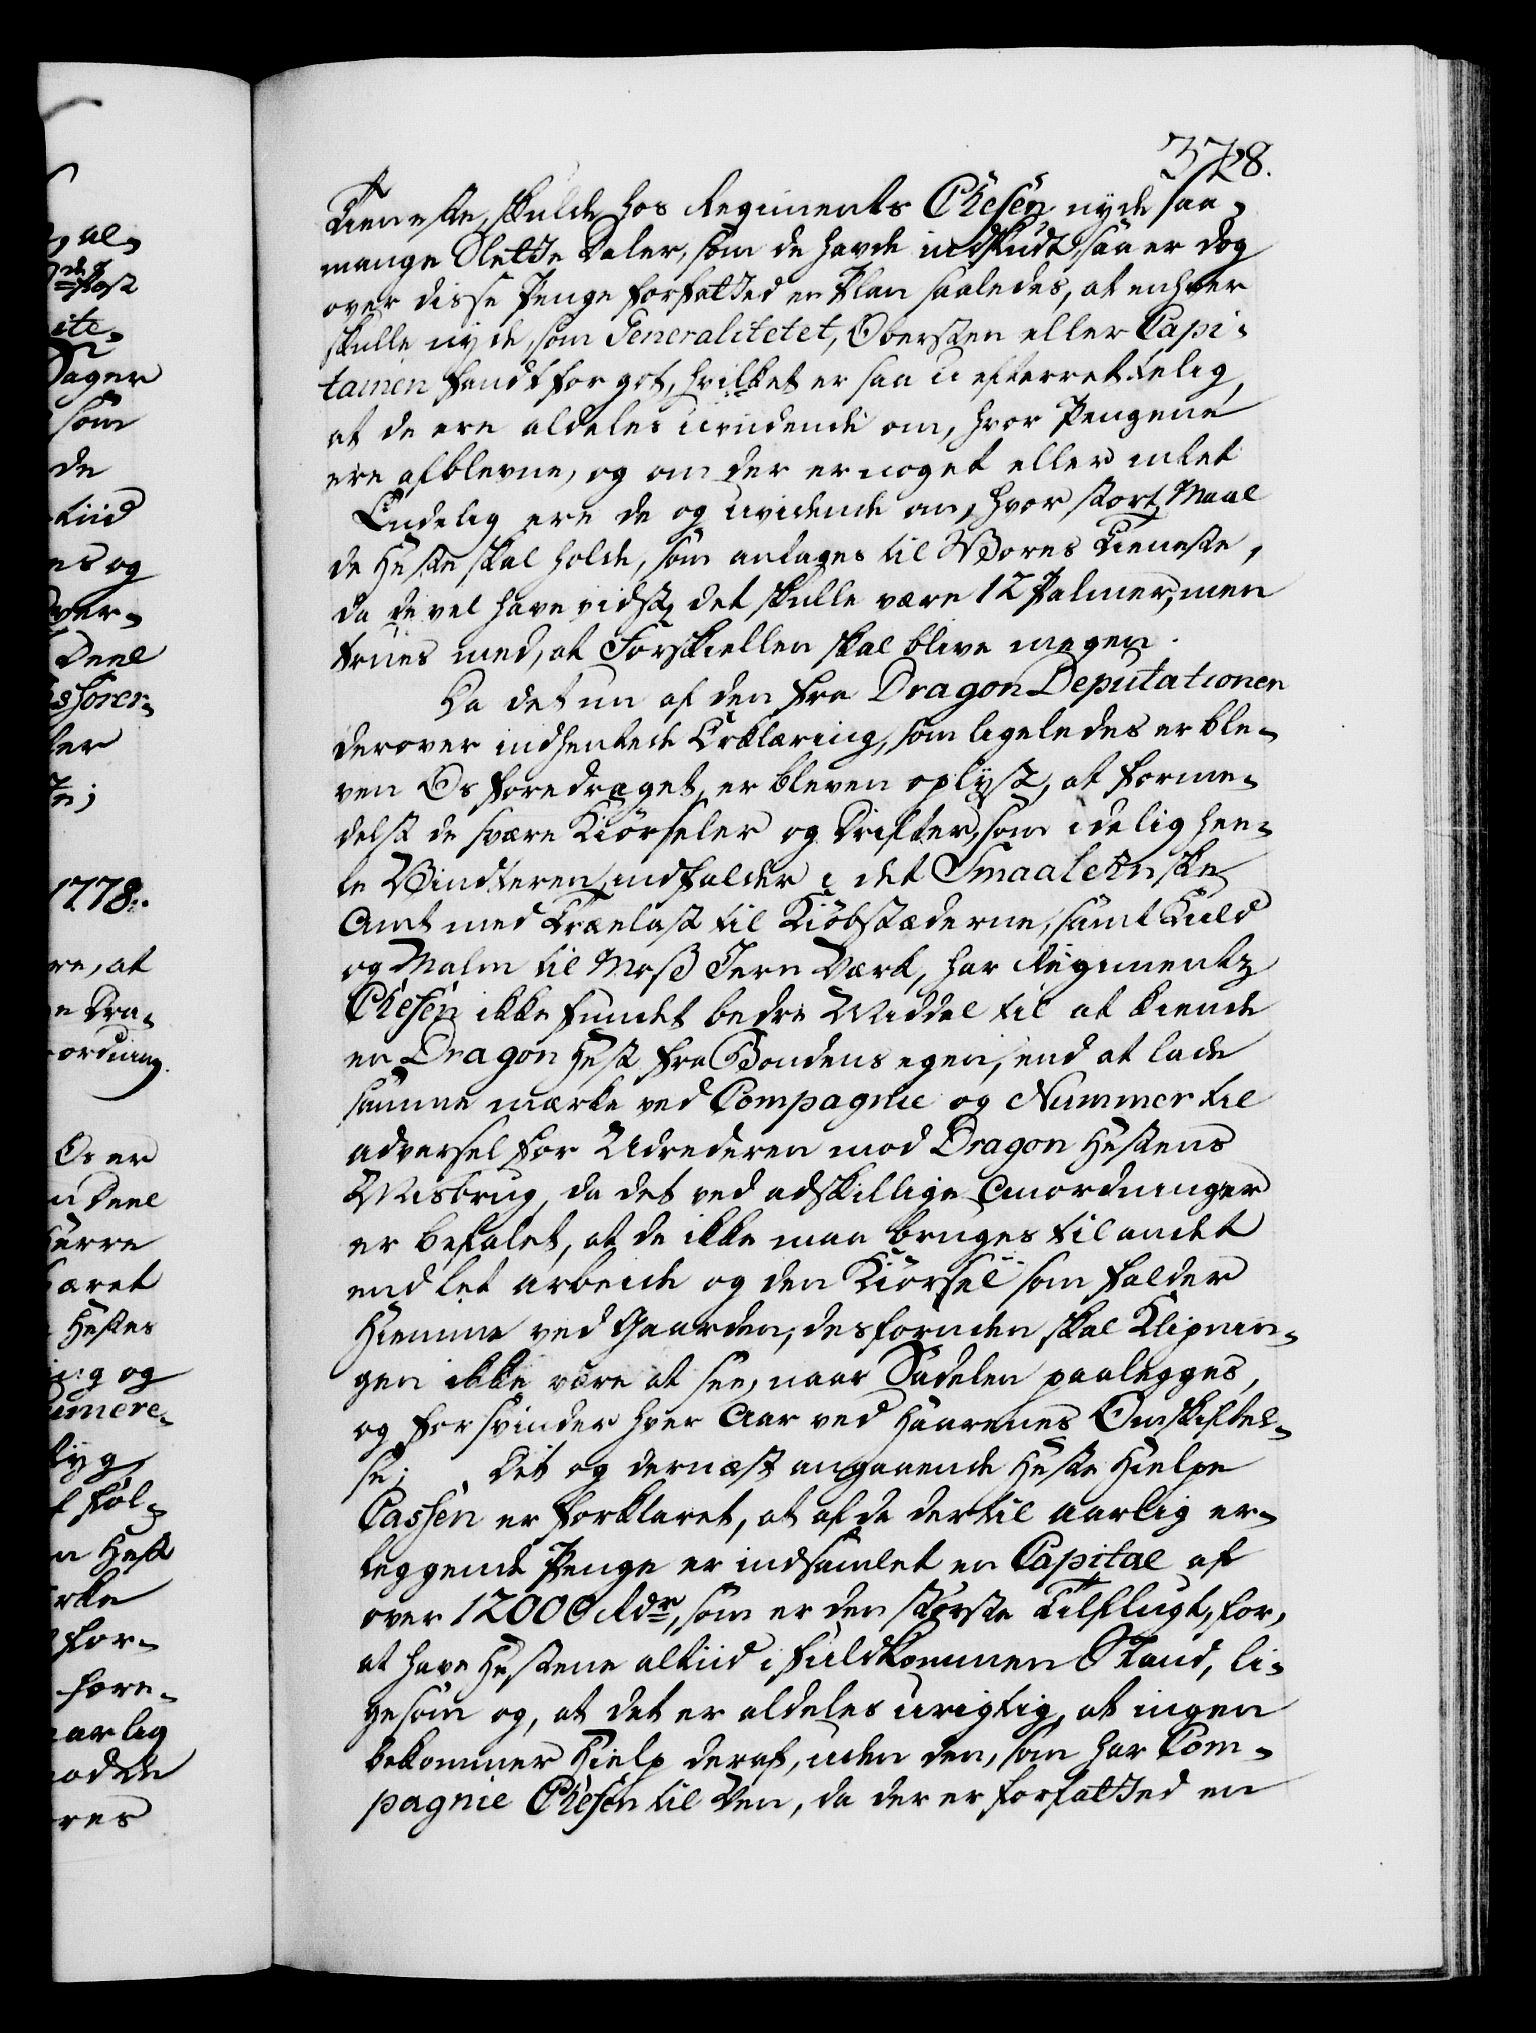 378.
Tieneste, skulde hos Regiments Chefen nyde saa-
mange Slette Daler, som de havde indskudt, saa er dog
over disse Penge forfatted en Plan saaledes, at enhver
skulle nyde, som Generalitetet, Obersten eller Capi-
tainen fandt for got, hvilket er saa u efterrettelig,
at de ere aldeles uvidende om, hvor Pengene
ere afblevne, og om der er noget eller intet
Endelig ere de og uvidende om, hvor stort Maal
de Heste skal holde, som antages til Vores Tieneste,
da de vel have vidst, det skulle være 12 Palmer, men
trues med, at Forskiellen skal blive megen.
Da det nu af den fra Dragon Deputationen
derover indhentede Erklæring, som ligeledes er ble-
ven Os foredraget, er bleven oplyst, at forme-
delst de svære Kiørseler og Drifter, som idelig hee-
le Vindteren indfalder i det Smaalehnske
Amt med Trælast til Kiøbstæderne, samt Kuld
og Malm til Moss Jern Værk, har Regimentz
Chefen ikke fundet bedre Middel til at kiende
en Dragon Hest fra Bondens egen, end at lade
samme mærke ved Compagnie og Nummer til
advarsel for Udrederen mod Dragon Hestens
Misbrug, da det ved adskillige Anordninger
er befalet, at de ikke maa bruges til andet
end let arbeide og den Kiørsel som falder
Hiemme ved Gaarden; desforuden skal Klipnin-
gen ikke være at see, naar Sadelen paalegges,
og forsvinder hver Aar ved Haarenes Omskiftel-
se; Dit og dernæst angaaende Heste Hielpe
Cassen er forklaret, at af de dertil aarlig er-
leggende Penge er indsamlet en Capital af
over 12000 Rdr, som er den største Tilflugt, for,
at have Hestene altiid i fuldkommen Stand, li-
gesom og, at det er aldeles urigtig, at ingen
bekommer Hielp deraf, uden den, som har Com-
pagnie Chefen til Ven, da der er forfatted en